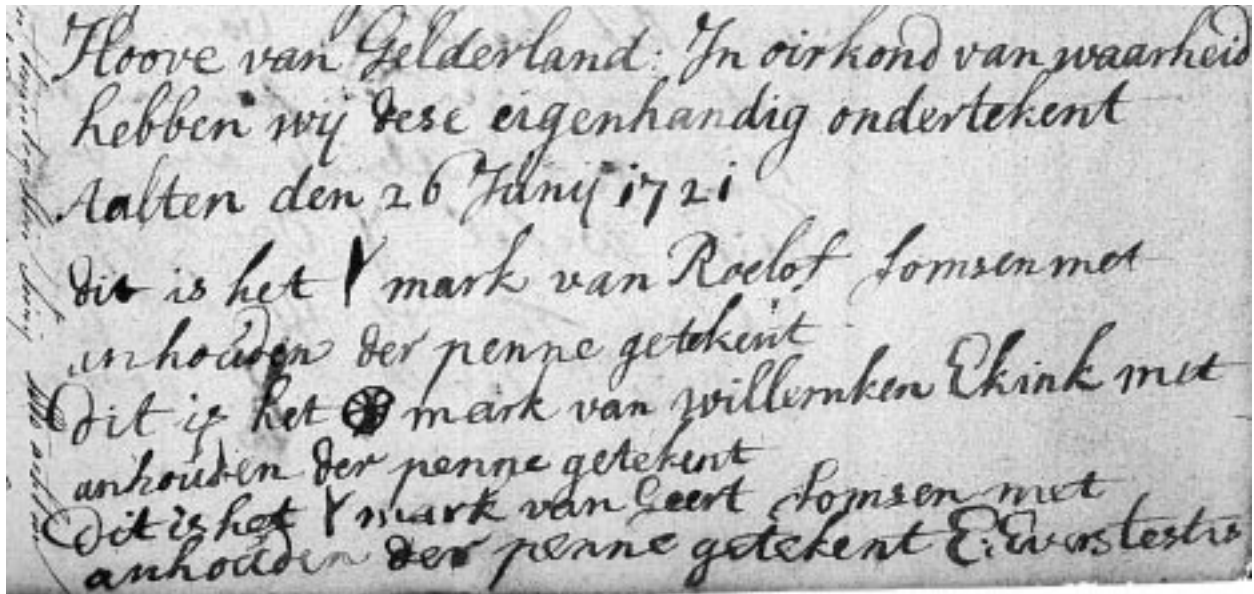 Hoove van Gelderland: In oirkond van waarheid
hebben wij dese eigenhandig ondertekent
Aalten den 26 Junij 1721
dit is het mark van Roelof Somsen met
anhouden der penne getekent
dit is het mark van willemken Ekink met
anhouden der penne getekent
dit is het mark van Geert Somsen met
anhouden der penne getekent E: Evers testis